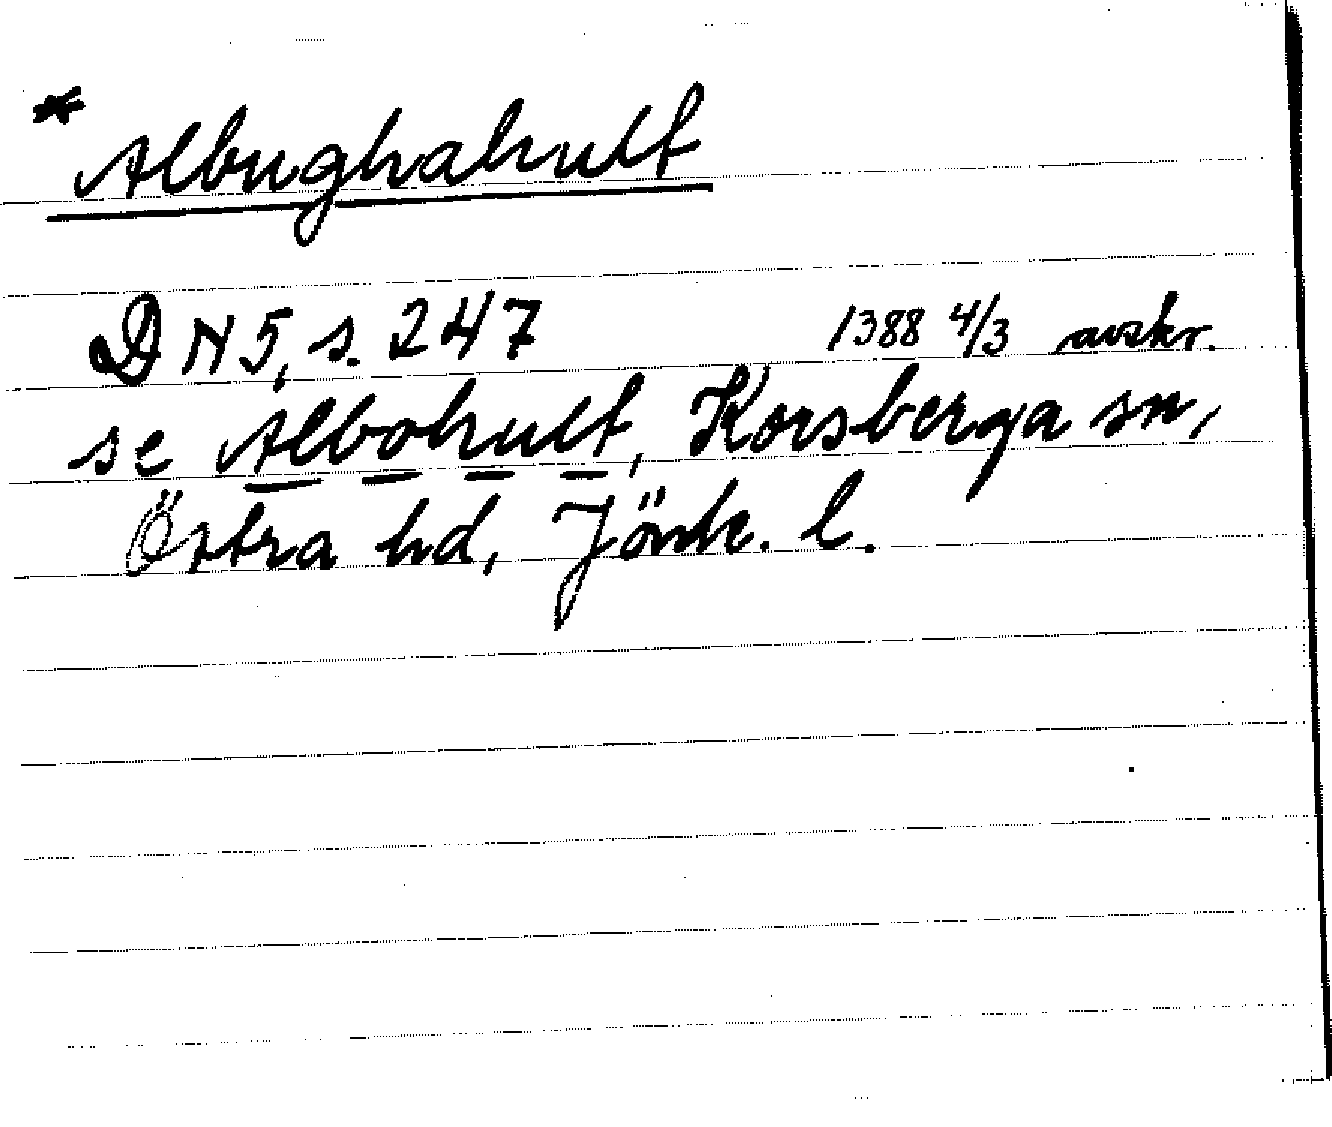 * Albughahult
DN 5, s. 247 1388 4/3 avskr.
se Albohult, Korsberga sn,
Östra hd, Jönk. l.